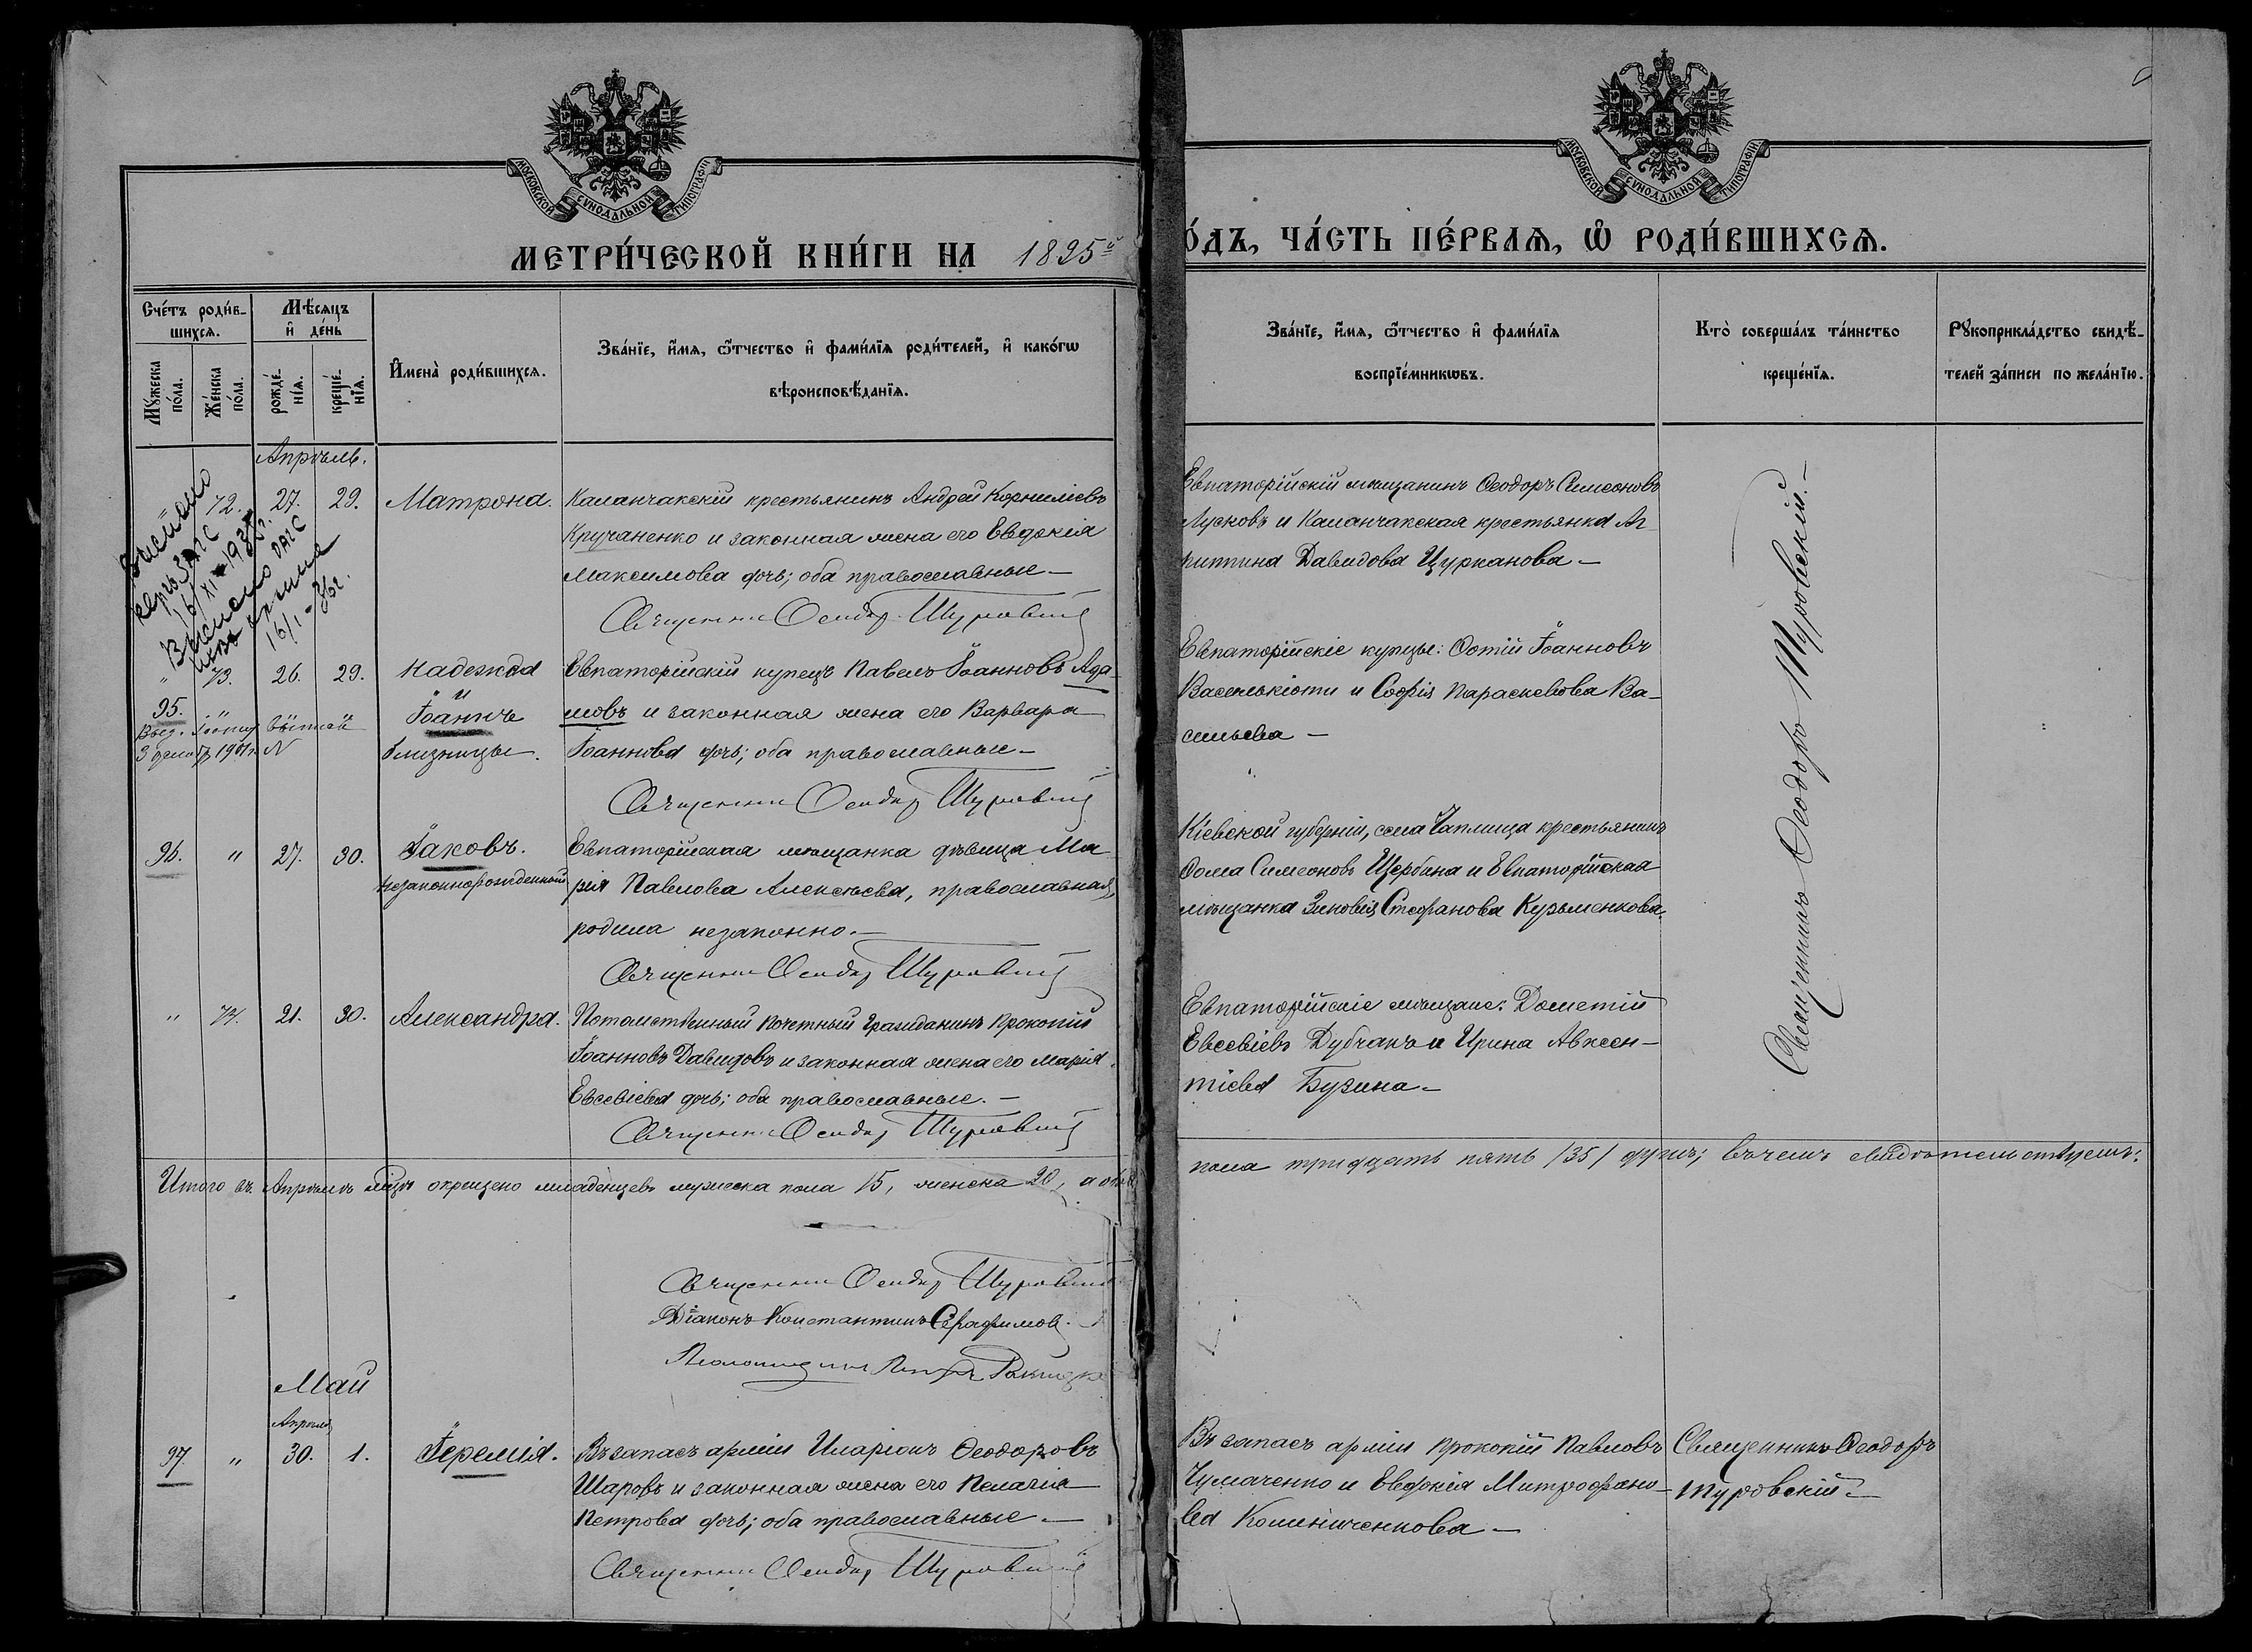 МОСКОВСКОЙ СУНОДАЛЬНОЙ ТИПОГРАФІИ
МОСКОВСКОЙ СУНОДАЛЬНОЙ ТИПОГРАФІИ
МЕТРИ́ЧЕСКОЙ КНИ́ГИ НА 1895й
О́ДЪ, ЧА́СТЬ ПЕ́РВАЯ, Ѡ РОДИ́ВШИХСЯ.
Сче́тъ роди́в-
шихся.
Мꙋ́жеска по́ла.
Же́нска по́ла.
Мѣ́сяцъ
и҆ де́нь
рожде́-
нїя.
креще́-
нїя.
И҆мена̀ роди́вшихся.
Зва́нїе, и҆́мя, ѻ҆́тчество и҆ фами́лїя роди́телей, и҆ како́гѡ
вѣроисповѣ́данїя.
Зва́нїе, и҆́мя, ѻ҆́тчество и҆ фами́лїя
воспрїе́мникѡвъ.
Кто̀ соверша́лъ та́инство
креще́нїя.
Рꙋкоприкла́дство свидѣ́-
телей за́писи по жела́нїю.
Апрѣль.
" 72. 27. 29. Матрона.
Каланчакскій крестьянинъ Андрей Корниліевъ
Кручаненко и законная жена его Евдокія
Максимова дочь; оба православные —
Священник Ѳеодор Туровский
Евпаторійскій мѣщанинъ Ѳеодоръ Симеоновъ
Лусковъ и Каланчакская крестьянка Аг-
риппина Давидова Цурканова —
Выслано
16/XI 193
Выслано
16/1
" 73. 26. 29. Надежда
95. " и
Іоаннъ
близнецы.
Евпаторійскій купецъ Павелъ Іоанновъ Ада-
мовъ и законная жена его Варвара
Іоаннова дочь; оба православные —
Священник Ѳеодор Туровский
Евпаторійскіе купцы: Фотій Іоанновъ
Васильскіоти и Софія Параскевова Ва-
сильева —
96. " 27. 30. Іаковъ.
незаконнорожденный
Евпаторійская мѣщанка дѣвица Ма
рія Павлова Алексѣева, православная,
родила незаконно. —
Священник Ѳеодор Туровский
Кіевской губерніи, села Чаплища крестьянинъ
Ѳома Симеоновъ Щербина и Евпаторійская
мѣщанка Зиновія Стефанова Кузьменкова.
" 74. 21. 30. Александра.
Потомственный Почетный Гражданинъ Прокопій
Іоанновъ Давидовъ и законная жена его Марія
Евсевіева дочь; оба православные. —
Священник Ѳеодор Туровский
Евпаторійскіе мѣщане: Дометій
Евсевіевъ Дубчакъ и Ирина Авксен-
тіева Бузина —
Священникъ Ѳеодоръ Туровскій. —
Итого въ Апрѣлѣ мѣсяцѣ окрещено младенцевъ мужеска пола 15, женска 20, а обоего
пола тридцать пять /35/ душъ; въ чемъ свидѣтельствуемъ:
Священник Ѳеодор Туровский
Діаконъ Константинъ Серафимовъ.
Псаломщикъ Петръ
Май
Апрѣля
97. " 30. 1. Іеремія.
Въ запасѣ арміи Иларіонъ Ѳеодоровъ
Шаровъ и законная жена его Пелагія
Петрова дочь; оба православные. —
Священник Ѳеодор Туровский
Въ запасѣ арміи Прокопій Павловъ
Чумаченко и Евдокія Митрофано-
ва Колиниченкова —
Священникъ Ѳеодоръ
Туровскій —